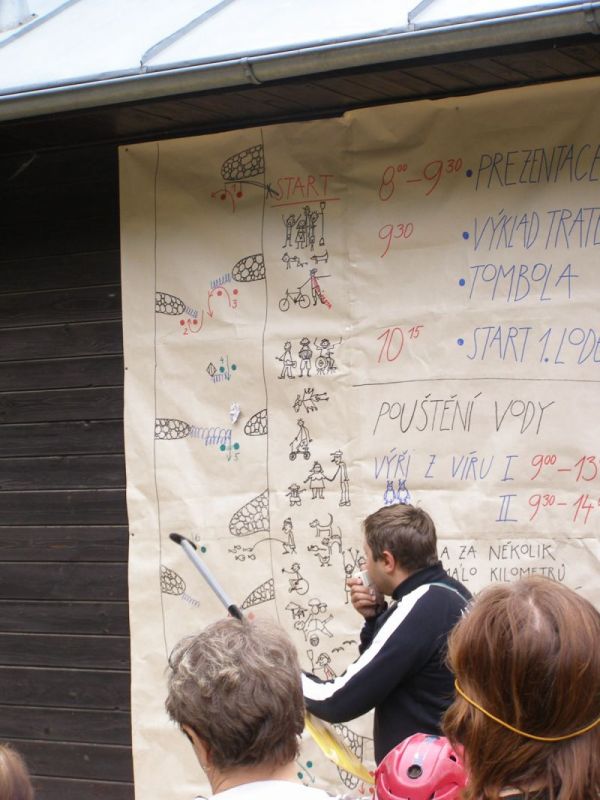 START
8⁰⁰-9³⁰ • PREZENTACE
9³⁰ • VÝKLAD TRATI
• TOMBOLA
10¹⁵ • START 1. LODĚ
POUŠTĚNÍ VODY
VÝŘÍ Z VÍRU I 9⁰⁰-13
II 9³⁰-14
ZA NĚKOLIK
MÁLO KILOMETRŮ
1
3
2
4
5
6